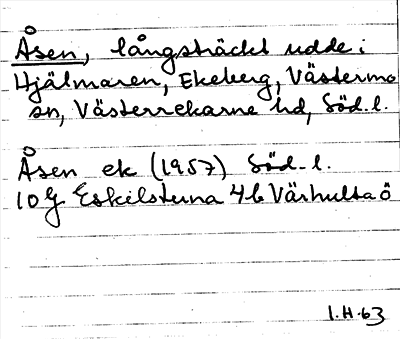 Åsen, långsträckt udde i
Hjälmaren, Ekeberg, Västermo
sn, Västerrekarne hd, Söd. l.
Åsen ek (1957) Söd. l.
10 G Eskilstuna 4 b Värhultaö
I.H. 63